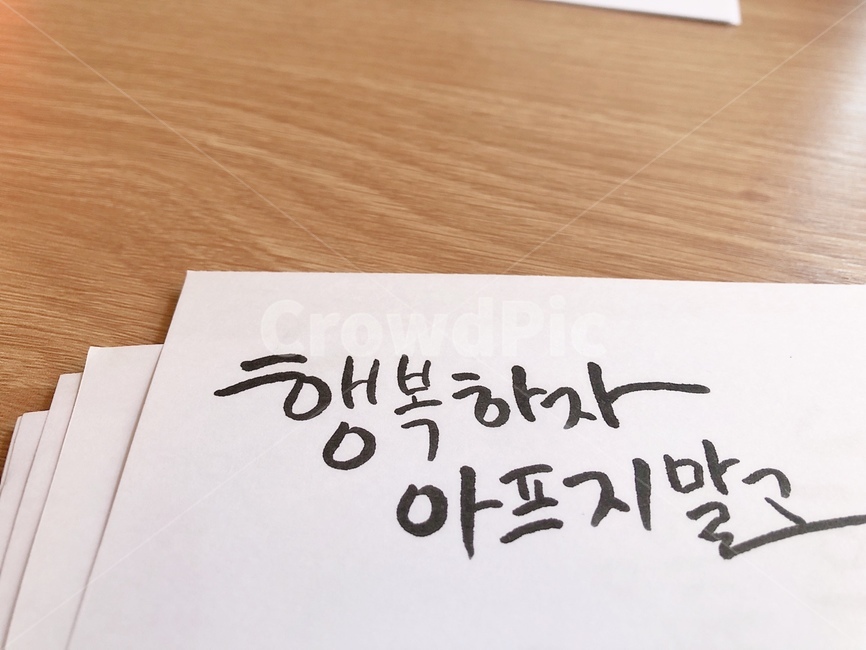 CrowdPic
행복하자
아프지말고